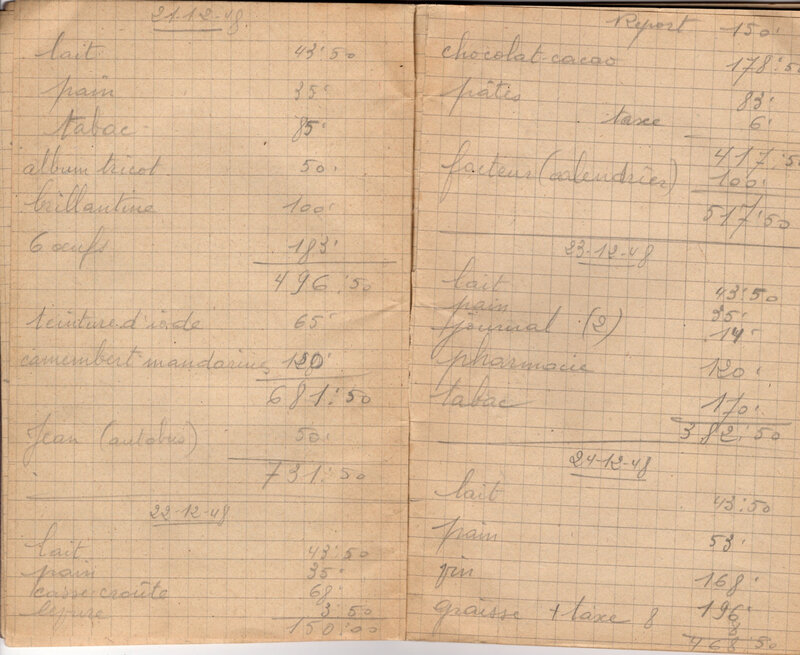 21-12-48.
lait 43:50
pain 35:
tabac 85:
album tricot 50:
brillantine 100:
6 œufs 183:
496:50
teinture d'iode 65:
camembert mandarines 120:
681:50
Jean (autobus) 50:
731:50
22-12-48
lait 43:50
pain 35:
casse-croûte 68:
levure 3:50
150:00
Report 150:
chocolat-cacao 178:50
pâtes 83:
taxe 6:
417:50
facteur (calendrier) 100:
517:50
23-12-48
lait 43:50
pain 35:
journal (2) 14:
pharmacie 120:
tabac 170:
382:50
24-12-48
lait 43:50
pain 53:
vin 168:
graisse + taxe 8 196:
8
468:50